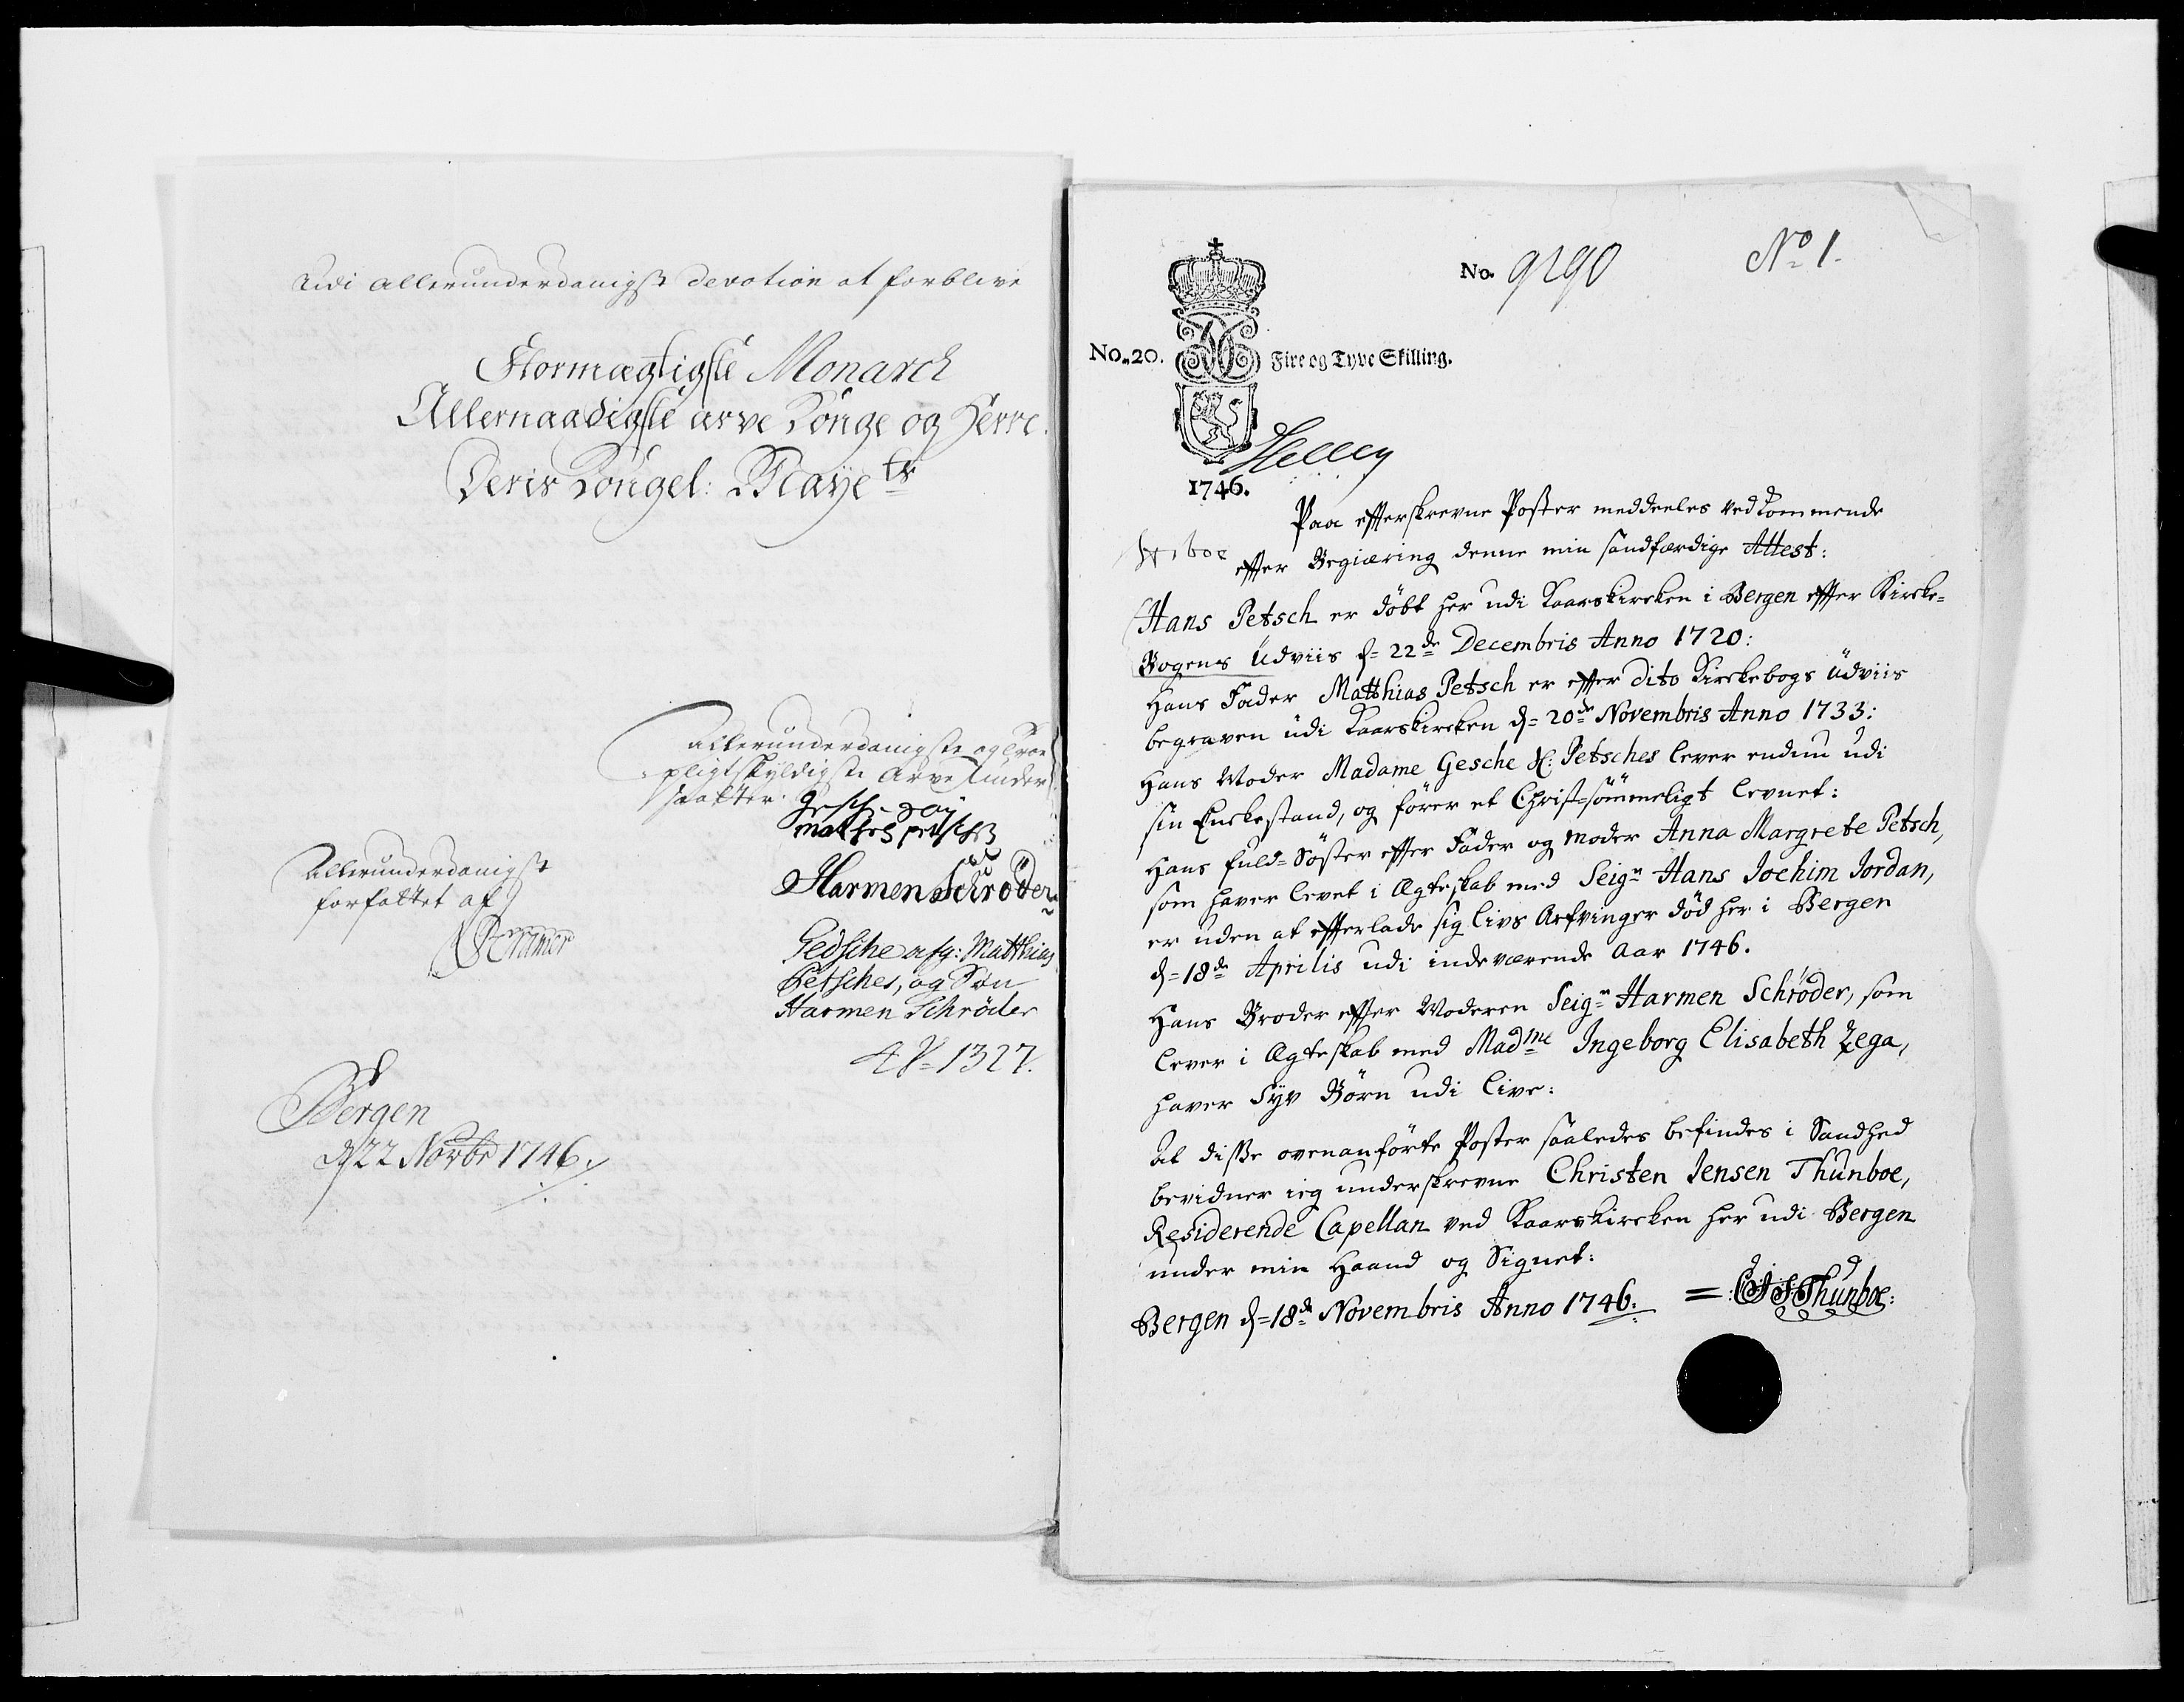 udi allerunderdanigst devotion at forblive
Stormægtigste Monarch
Allernaadigste arve Konge og Herre.
Deris Kongel: Maye ts
allerunderdanigste og troe
pligtskyldigste arve under
saatter.
gesche say
mathes petsches
Harmen Schröder
Allerunderdanigst
forfattet af
Cramer
Gedsche afg: Matthias
Petsches, og Søn
Harmen Schrøder
1327.
Bergen
d 22 Novbr 1746.
No. 9290
No 1.
No. 20.
Fire og Tyve Skilling.
1746.
Paa efterskrevne Poster meddeeles vedkommende
efter Begiæring denne min sandfærdige Attest:
Hans Petsch er döbt her udi Kaarskircken i Bergen efter Kircke-
Bogens Udviis d= 22de Decembris Anno 1720:
Hans Fader Matthias Petsch er efter dito Kirckebogs Udviis
begraven udi Kaarskircken d= 20de Novembris Anno 1733:
Hans Moder Madame Gesche Sl: Petsches lever endnu udi
sin Enckestand, og förer et Christ-sömmeligt levnet:
Hans fuld-Söster efter Fader og Moder Anna Margrete Petsch,
som haver levet i Ægteskab med Seigr Hans Jochim Jordan,
er uden at efterlade sig Livs Arfvinger död her i Bergen
d= 18de Aprilis udi indeværende Aar 1746.
Hans Broder efter Moderen Seigr Harmen Schröder, som
lever i Ægteskab med Madme Ingeborg Elisabeth Zega,
haver Syv Börn udi Live:
At disse ovenanförte Poster saaledes befindes i Sandhed
bevidner ieg underskrevne Christen Jensen Thunboe,
Residerende Capellan ved Kaarskircken her udi Bergen
under min Haand og Signet:
Bergen d= 18de Novembris Anno 1746. = C J S Thunboe: